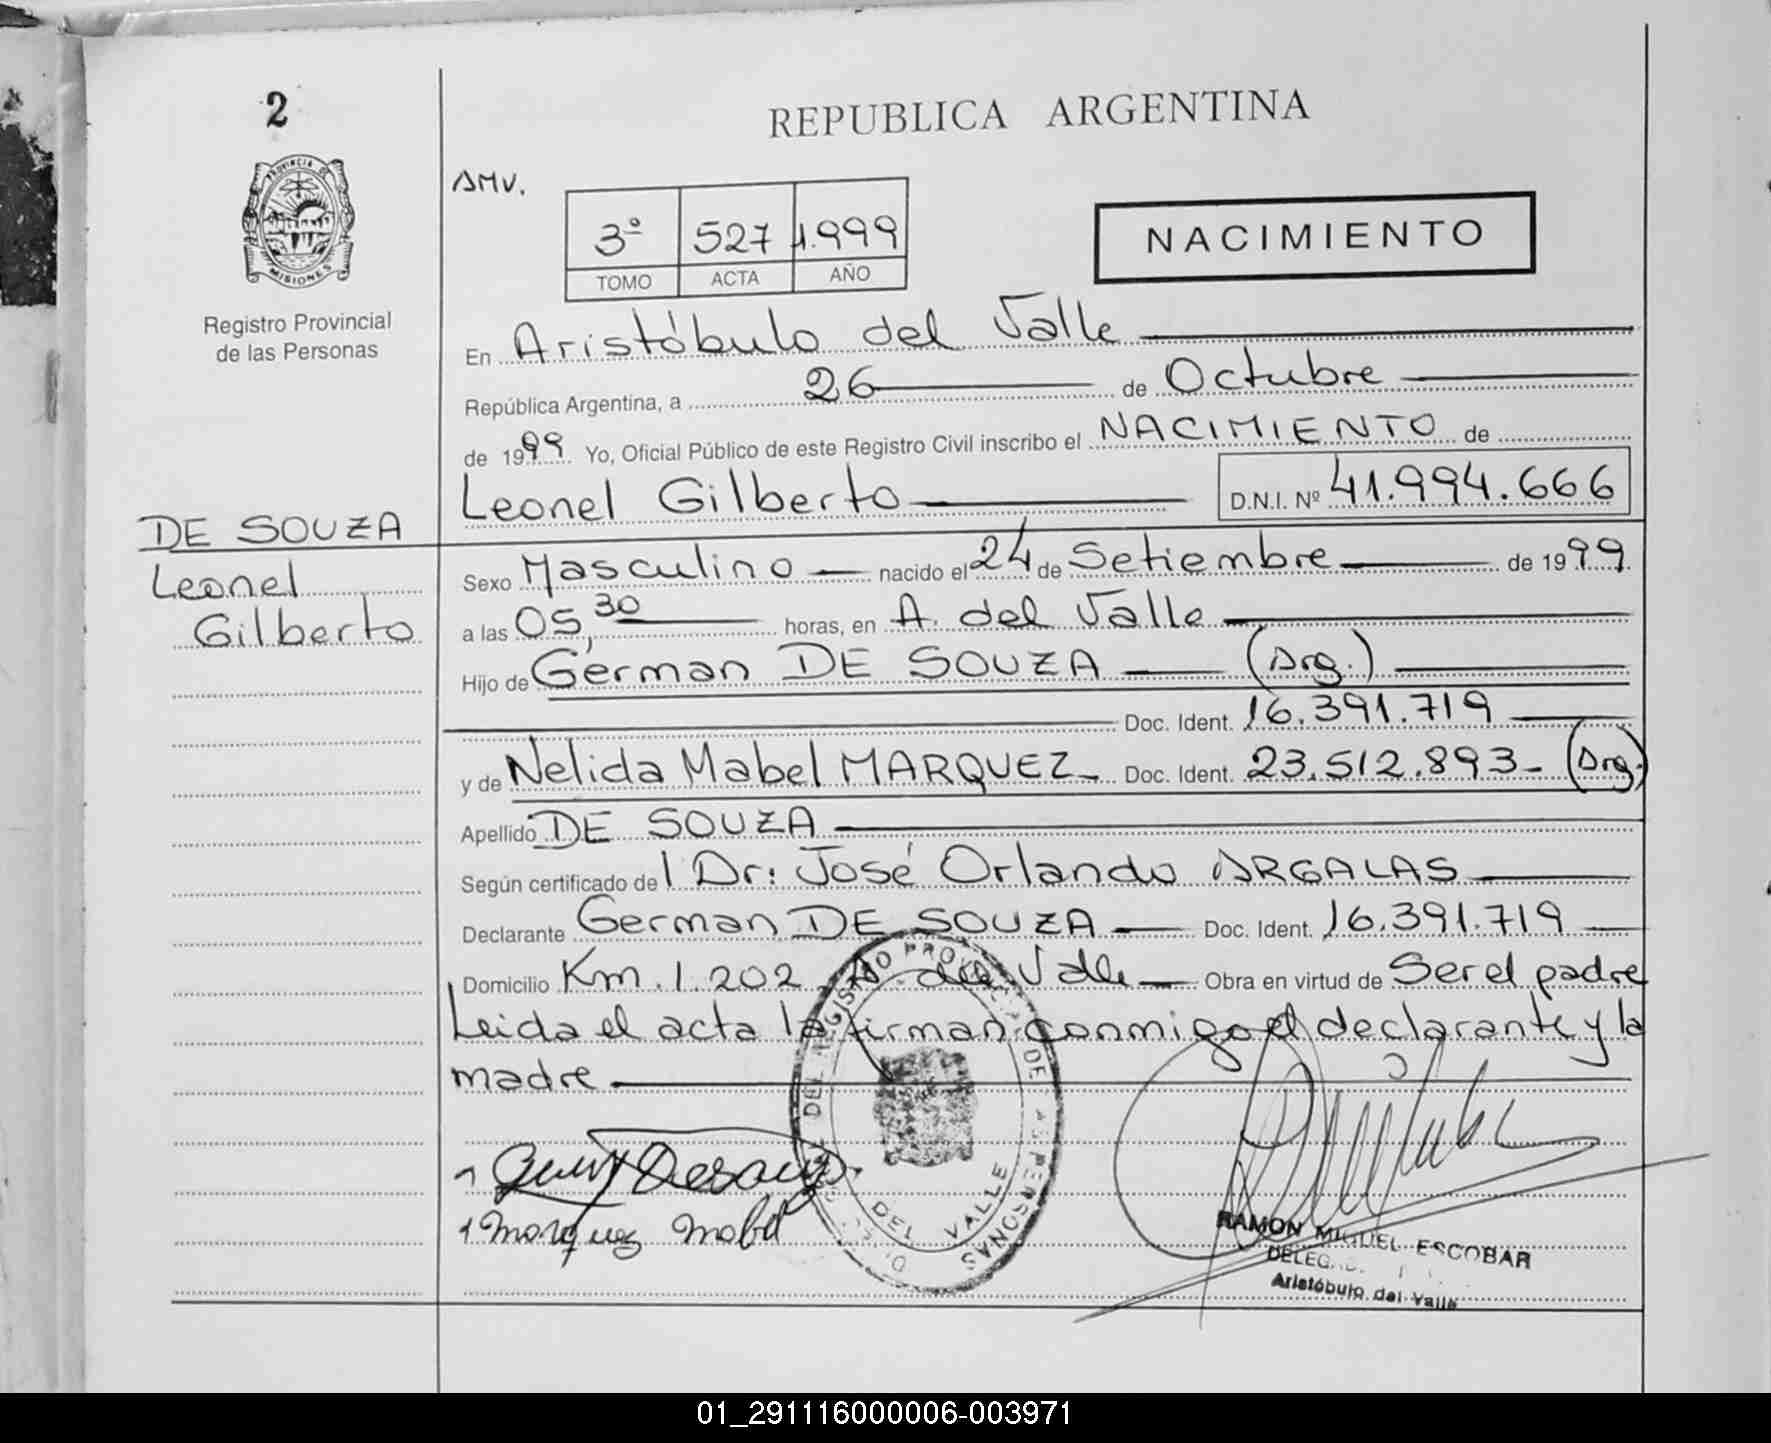 2
PROVINCIA DE
MISIONES
Registro Provincial
de las Personas
DE SOUZA
Leonel
Gilberto
REPUBLICA ARGENTINA
AMV.
3º 527 1.999
TOMO ACTA AÑO
NACIMIENTO
En Aristóbulo del Valle
República Argentina, a 26 de Octubre
de 1999 Yo, Oficial Público de este Registro Civil inscribo el NACIMIENTO de
Leonel Gilberto D.N.I. Nº 41.994.666
Sexo Masculino nacido el 24 de Setiembre de 1999
a las 05,30 horas, en A. del Valle
Hijo de German DE SOUZA (Arg.)
Doc. Ident. 16.391.719
y de Nelida Mabel MARQUEZ Doc. Ident. 23.512.893 (Arg.)
Apellido DE SOUZA
Según certificado del Dr: José Orlando ARGALAS
Declarante German DE SOUZA Doc. Ident. 16.391.719
Domicilio Km. 1.202 A. del Valle Obra en virtud de Ser el padre
Leida el acta la firman conmigo el declarante y la
madre
Marquez Mabel
RAMON MIGUEL ESCOBAR
Aristóbulo del Valle
DEL REGISTRO PROVINCIAL DE LAS PERSONAS
DEL VALLE
01_291116000006-003971